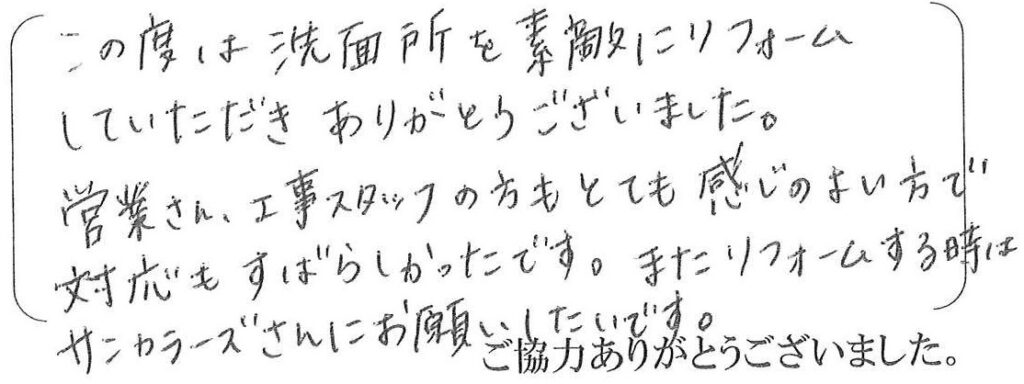 この度は洗面所を素敵にリフォーム
していただき ありがとうございました。
営業さん、工事スタッフの方もとても感じのよい方で
対応もすばらしかったです。またリフォームする時は
サンカラーズさんにお願いしたいです。
ご協力ありがとうございました。